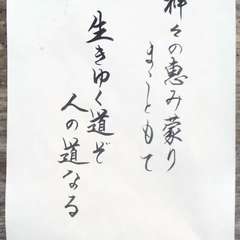 神々の恵み蒙り
まこともて
生きゆく道ぞ
人の道なる